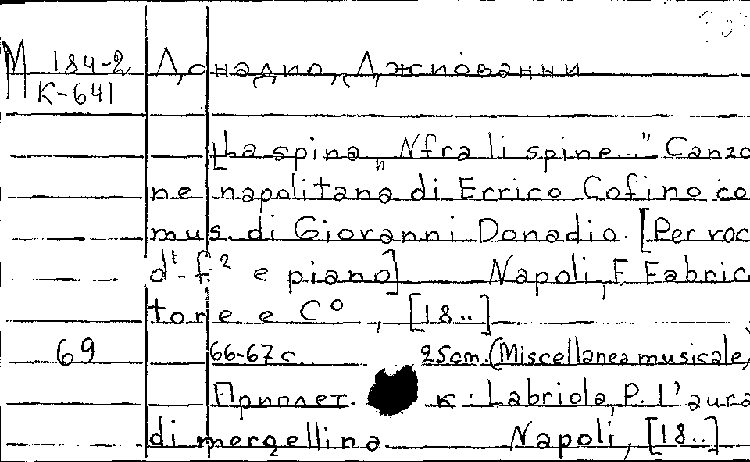 М 184-2 Донадио, Джиованни
К-641
[La spina „Nfra li spine..." Canzo
ne napolitana di Errico Cofino co
mus. di Giovanni Donadio. [Per voc
d¹-f² e piano] Napoli, F. Fabric
tore e Cº, [18..]
69 66-67 с. 25 cm. (Miscellanea musicale,
Приплет. к: Labriola, P. L'aura
di mergellina Napoli, [18..]